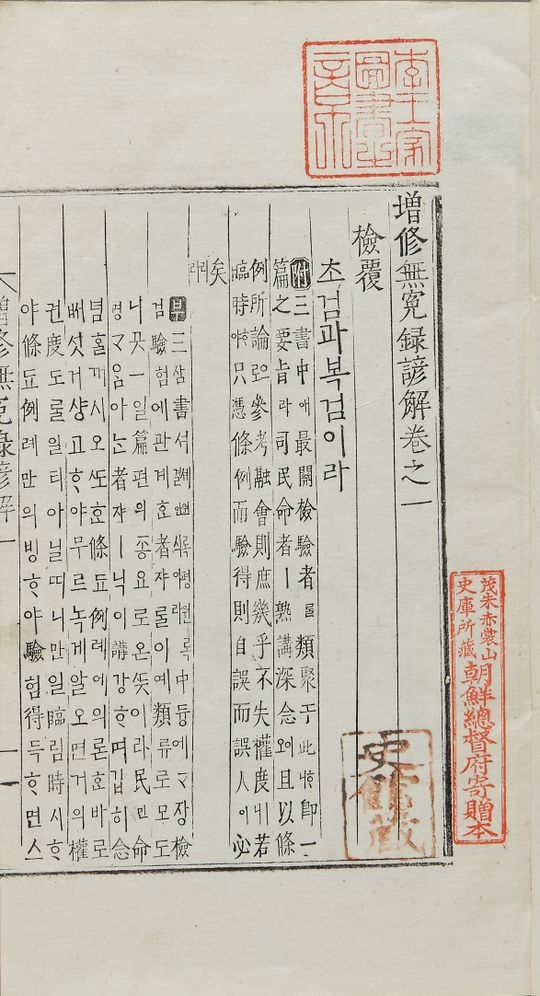 李王家
圖書之
章
增修無寃錄諺解卷之一
檢覆
초검과복검이라
附三書中애最關檢驗者를類聚于此卽一
篇之要旨라司民命者ㅣ熟講深念且以條
例所論으로參考融會則庶幾乎不失權度니若
臨時ᄒᆞ야只憑條例而驗得則自誤而誤人이必
矣리라
三삼書셔中듕에ᄀᆞ장檢
검驗험에관계ᄒᆞᆫ者쟈ᄅᆞᆯ이예類류로모도
니곳一일篇편의종요로온ᄯᅳᆺ이라民민命
명ᄀᆞ음아ᄂᆞᆫ者쟈ㅣ닉이講강ᄒᆞ며깁히念
념홀ᄭᅥ시오ᄯᅩᄒᆞᆫ條됴例례에의론ᄒᆞᆫ바로
ᄡᅥ섯거샹고ᄒᆞ야무르녹게알오면거의權
권度도ᄅᆞᆯ일티아닐ᄯᅵ니만일臨림時시ᄒᆞ
야條됴例례만의빙ᄒᆞ야驗험得득ᄒᆞ면스
增修無寃錄諺解一
一
茂朱赤裳山
史庫所藏
朝鮮總督府寄贈本
史館藏